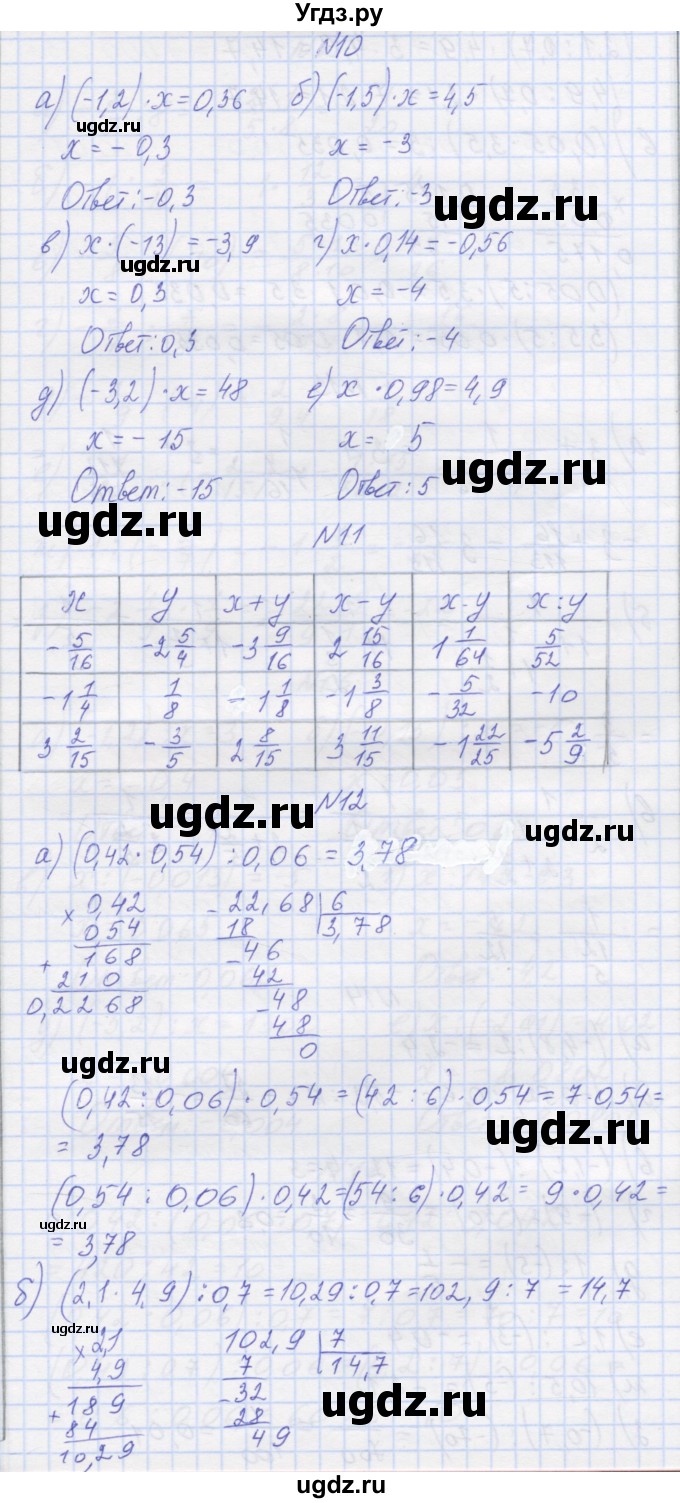 Угдз.ру
N10
а) (-1,2) · x = 0,36   б) (-1,5) · x = 4,5
ugdz.ru
x = - 0,3   x = -3
Ответ: -0,3   Ответ: -3
ugdz.ru
в) x · (-13) = -3,9   г) x · 0,14 = -0,56
ugdz.ru
x = 0,3   x = -4
Ответ: 0,3   Ответ: -4
д) (-3,2) · x = 48   е) x · 0,98 = 4,9
x = - 15   x = 5
ugdz.ru
Ответ: -15   Ответ: 5
ugdz.ru
N11
x   y   x + y   x - y   x · y   x : y
- 5/16   -2 5/4   -3 9/16   2 15/16   1 1/64   5/52
-1 1/4   1/8   - 1 1/8   -1 3/8   - 5/32   -10
3 2/15   - 3/5   2 8/15   3 11/15   -1 22/25   -5 2/9
N12
ugdz.ru
ugdz.ru
а) (0,42 · 0,54) : 0,06 = 3,78
× 0,42   - 22,68 | 6
0,54   18   3,78
+ 168   - 46
210   42
0,2268   - 48
48
0
ugdz.ru
(0,42 : 0,06) · 0,54 = (42 : 6) · 0,54 = 7 · 0,54 =
ugdz.ru
= 3,78
(0,54 : 0,06) · 0,42 = (54 : 6) · 0,42 = 9 · 0,42 =
ugdz.ru
= 3,78
б) (2,1 · 4,9) : 0,7 = 10,29 : 0,7 = 102,9 : 7 = 14,7
ugdz.ru
× 2,1   102,9 | 7
4,9   7   14,7
+ 189   - 32
84   28
10,29   49
ugdz.ru
ugdz.ru